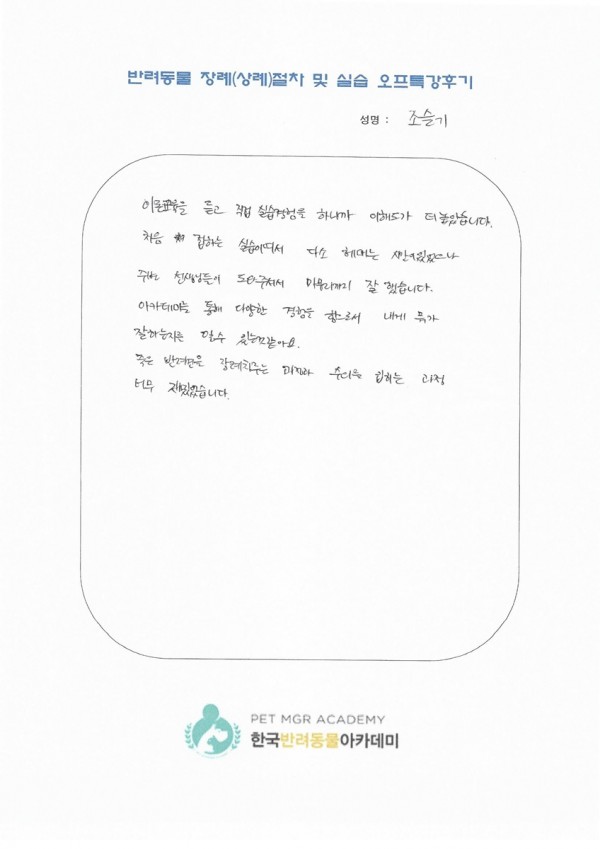 반려동물 장례(상례)절차 및 실습 오프특강후기
성명 : 조슬기
이론교육을 듣고 직접 실습경험을 하니까 이해도가 더 높았습니다.
처음 접하는 실습이라서 다소 헤매는 시간이 있었으나
주변 선생님들이 도와주셔서 마무리까지 잘 했습니다.
아카데미를 통해 다양한 경험을 함으로서 내게 뭐가
잘하는지를 알수 있는것같아요.
죽은 반려견을 장례치루는 수의를 입히는 과정
너무 재밌었습니다.
PET MGR ACADEMY
한국반려동물아카데미